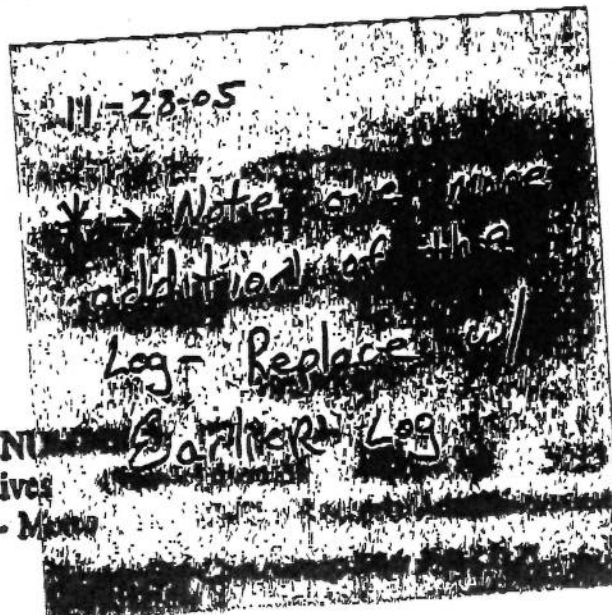 11-28-05
* → Note one more
addition of the
Log - Replace w/
Earlier Log
NU
ives
- Memo